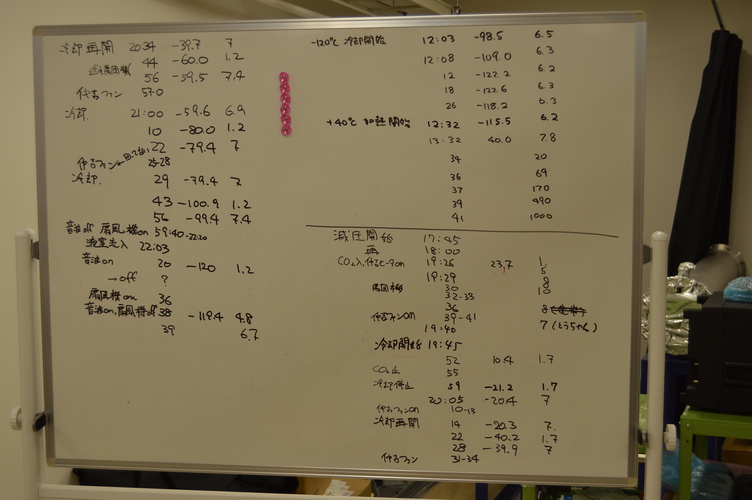 冷却再開 20:34 -39.7 7
44 -60.0 1.2
扇風機
56 -59.5 7.4
代古ファン 57.0
冷却. 21:00 -59.6 6.9
10 -80.0 1.2
22 -79.4 7
代古ファン 26-28
冷却. 29 -79.4 7
43 -100.9 1.2
56 -99.4 7.4
音波off 扇風機on 59:40-22:20
液室注入 22:03
音波on 20 -120 1.2
→off ?
扇風機on 36
音波on,扇風機off 38 -119.4 4.8
39 6.7
-120℃ 冷却開始 12:03 -98.5 6.5
12:08 -109.0 6.3
12 -122.2 6.2
18 -122.6 6.3
26 -118.2 6.3
+40℃ 加熱開始 12:32 -115.5 6.2
13:32 40.0 7.8
34 20
36 69
37 170
39 490
41 1000
減圧開始 17:45
再 18:00
CO₂入, 代古ヒータon 19:26 23.7 1.
19:29 5
扇風機 30 8
32-33 10
36 8
代古ファンon 39-41 7 (とうちゃん)
19:40
冷却開始 19:45
52 10.4 1.7
CO₂止 55
冷却停止 59 -21.2 1.7
20:05 -20.4 7
代古ファンon 10-13
冷却再開 14 -20.3 7.
22 -40.2 1.7
28 -39.9 7
代古ファン 31-34